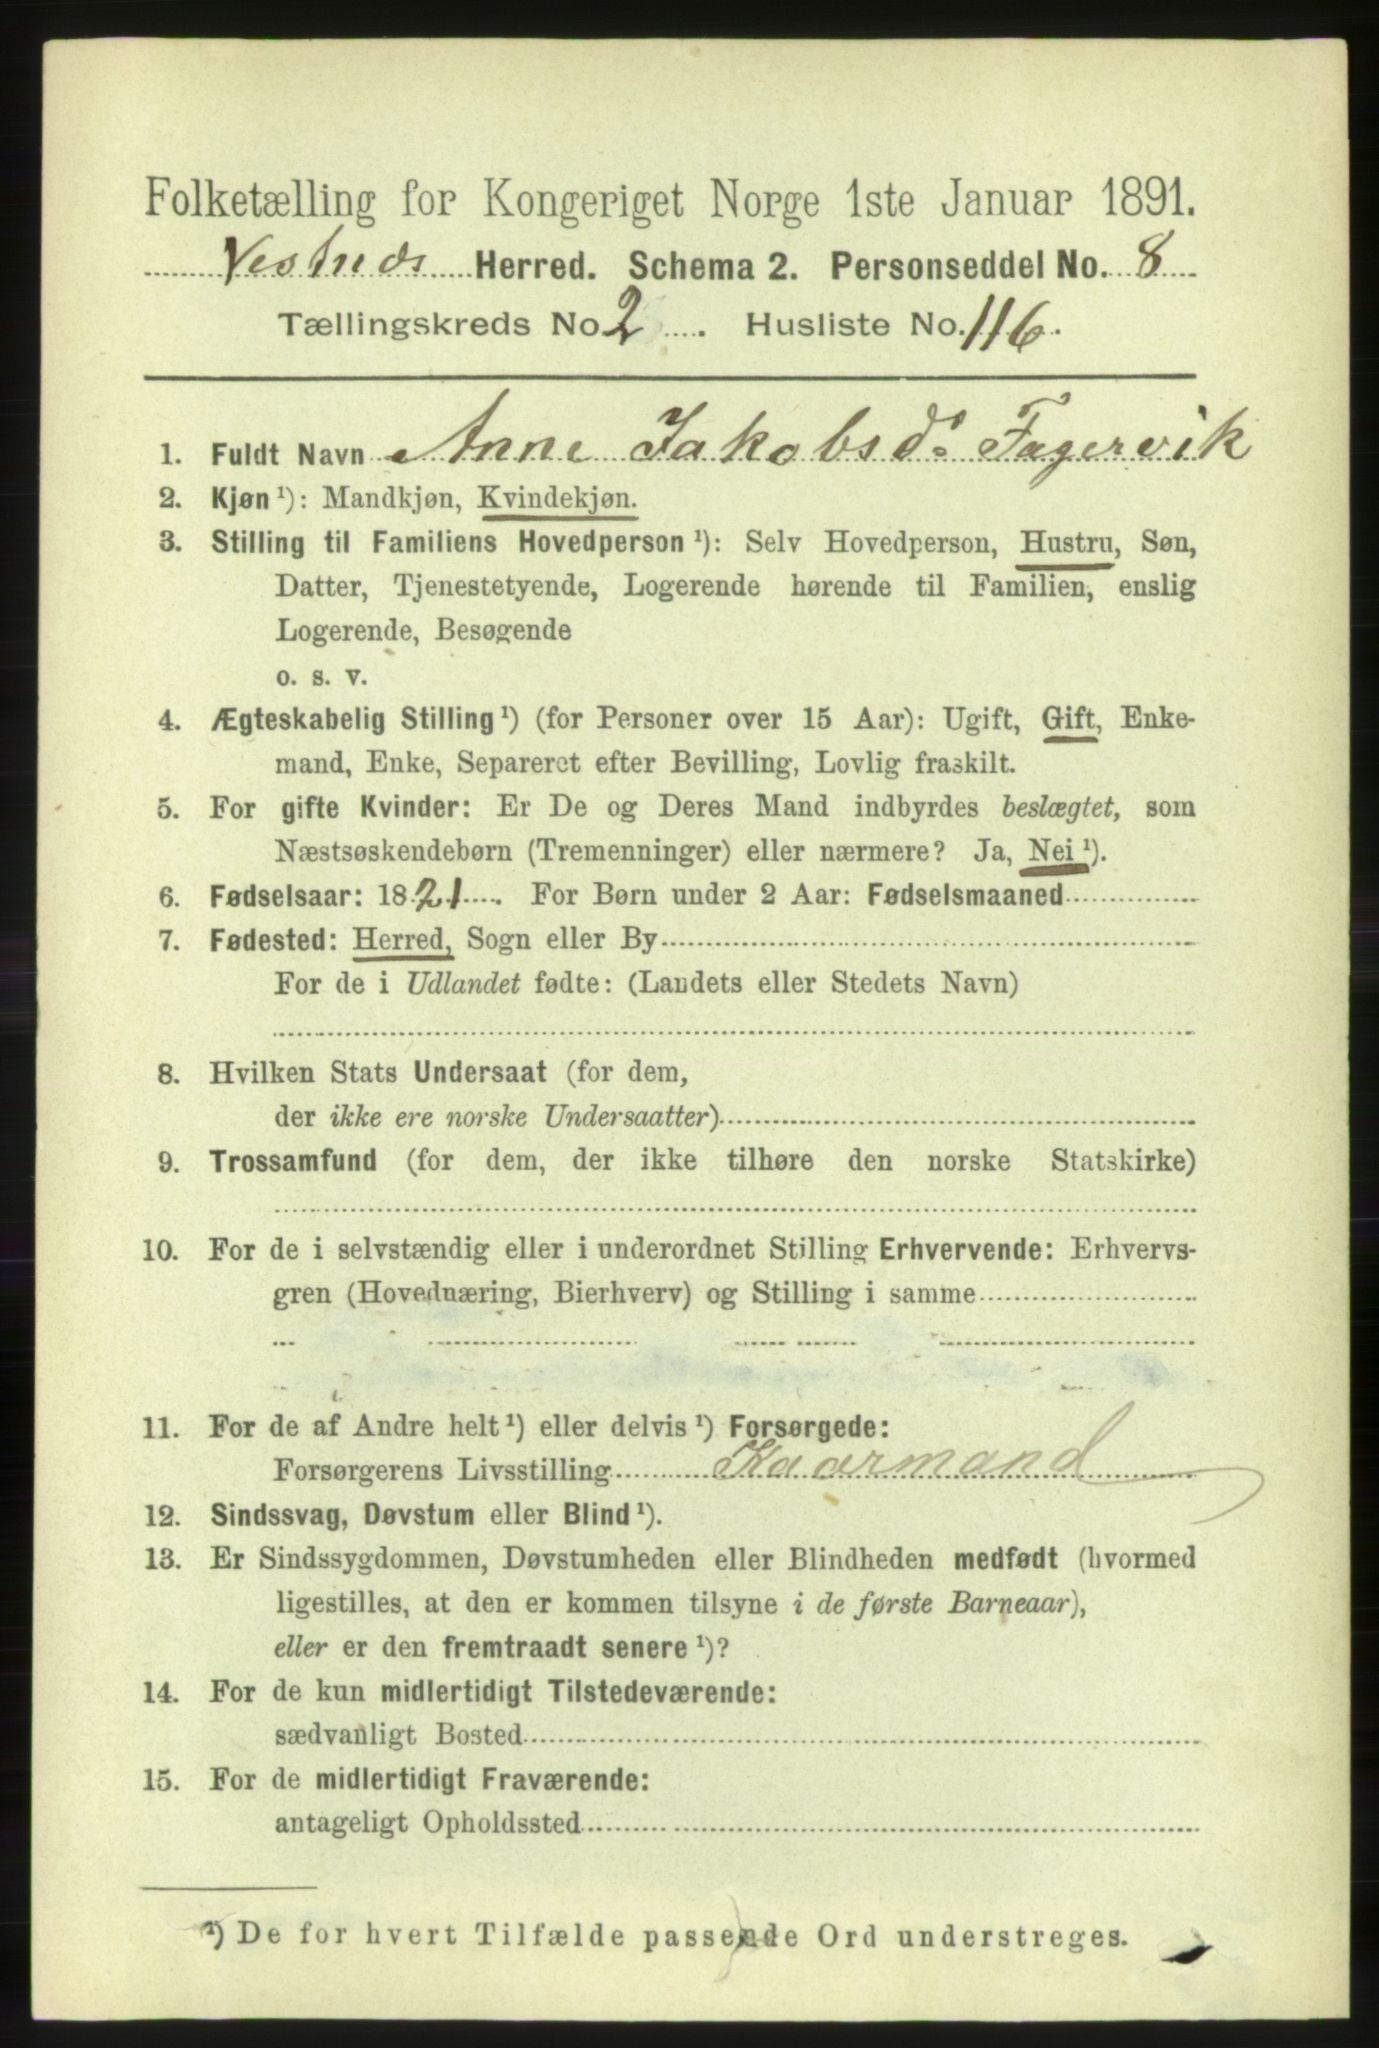 Folketælling for Kongeriget Norge 1ste Januar 1891.
Vestnes Herred. Schema 2. Personseddel No. 8
Tællingskreds No 2. Husliste No. 116.
1. Fuldt Navn Anne Jakobsd. Fagervik
2. Kjøn ¹): Mandkjøn, Kvindekjøn.
3. Stilling til Familiens Hovedperson ¹): Selv Hovedperson, Hustru, Søn,
Datter, Tjenestetyende, Logerende hørende til Familien, enslig
Logerende, Besøgende
o. s. v.
4. Ægteskabelig Stilling ¹) (for Personer over 15 Aar): Ugift, Gift, Enke-
mand, Enke, Separeret efter Bevilling, Lovlig fraskilt.
5. For gifte Kvinder: Er De og Deres Mand indbyrdes beslægtet, som
Næstsøskendebørn (Tremenninger) eller nærmere? Ja, Nei ¹).
6. Fødselsaar: 1821. For Børn under 2 Aar: Fødselsmaaned
7. Fødested: Herred, Sogn eller By
For de i Udlandet fødte: (Landets eller Stedets Navn)
8. Hvilken Stats Undersaat (for dem,
der ikke ere norske Undersaatter)
9. Trossamfund (for dem, der ikke tilhøre den norske Statskirke)
10. For de i selvstændig eller i underordnet Stilling Erhvervende: Erhvervs-
gren (Hovednæring, Bierhverv) og Stilling i samme
11. For de af Andre helt ¹) eller delvis ¹) Forsørgede:
Forsørgerens Livsstilling Kaarmand
12. Sindssvag, Døvstum eller Blind ¹).
13. Er Sindssygdommen, Døvstumheden eller Blindheden medfødt (hvormed
ligestilles, at den er kommen tilsyne i de første Barneaar),
eller er den fremtraadt senere ¹)?
14. For de kun midlertidigt Tilstedeværende:
sædvanligt Bosted
15. For de midlertidigt Fraværende:
antageligt Opholdssted
¹) De for hvert Tilfælde passende Ord understreges.